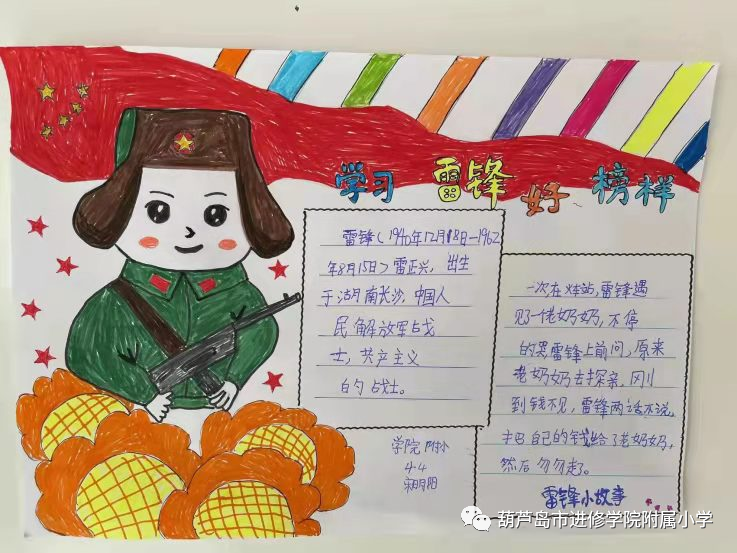 学习 雷锋 好 榜样
雷锋（1940年12月18日—1962
年8月15日）雷正兴，出生
于湖南长沙，中国人
民解放军战
士，共产主义
的战士。
一次在火车站，雷锋遇
见了一佬奶奶，不停
的哭雷锋上前问，原来
老奶奶去探亲，刚
到钱不见，雷锋两话不说，
把自己的钱给了老奶奶，
然后匆匆走了。
雷锋小故事
学院附小
4-4
葫芦岛市进修学院附属小学